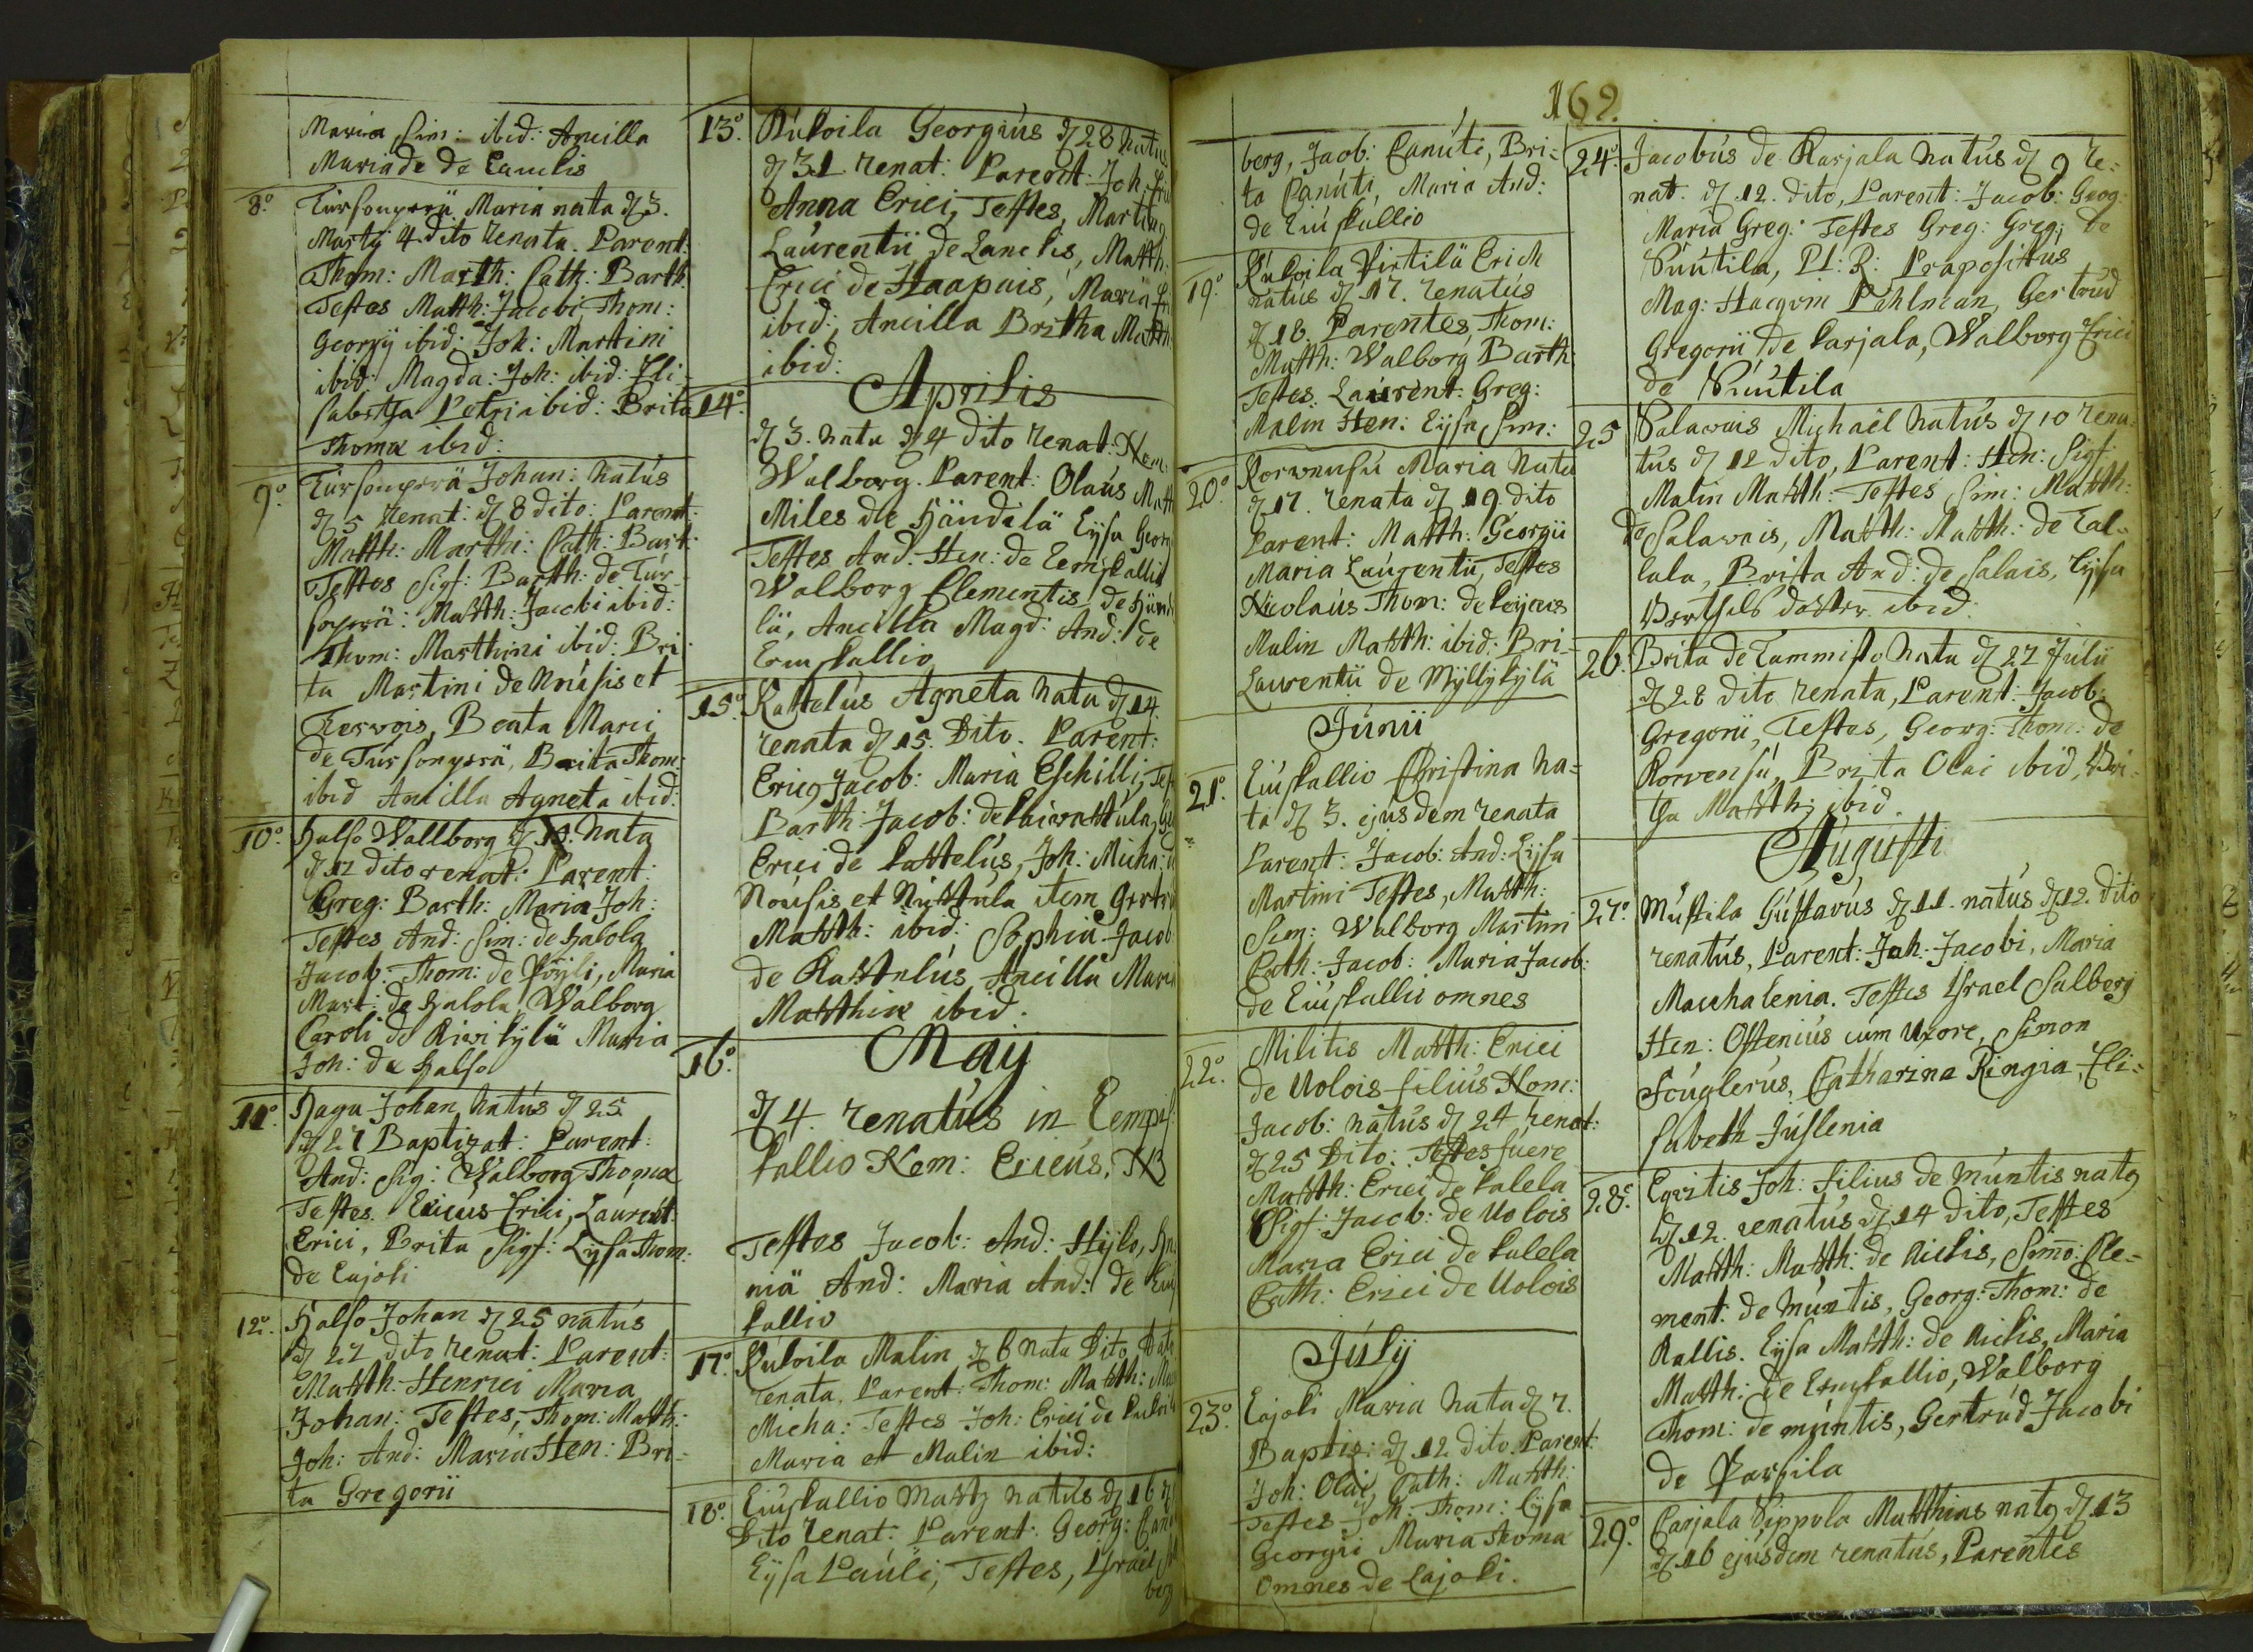 Maria Sim: ibid: Ancilla
Maria de Lanckis
8.° Tursonperä Maria nata d 3.
Martij 4 dito renata. Parent:
Thom: Marth: Cath: Barth:
Testes Matth: Jacobi, Thom:
Georgij ibid: Joh: Martini
ibid: Magda: Joh: ibid: Eli-
sabetha Petri ibid: Brita
Thomæ ibid:
9.° Tursonperä Johan: natus
d 5 renat: d 8 dito: Parent:
Matth: Marthi: Cath: Bart:
Testes Sigf: Barth: de Tur-
sonperä: Matth: Jacobi ibid:
Thom: Marthini ibid: Bri-
ta Martini de Nousis et
Beata Marci
de Tursonperä, Brita Thom:
ibid Ancilla Agneta ibid:
10.° Halso Wallborg nata
d 12 dito renat: Parent:
Greg: Barth: Maria Joh:
Testes And: Sim: de Halola
Jacob: Thom: de Maria
Mart: de Halola Walborg
Caroli de Riwikylä Maria
Joh: de Halso
11.° Haga Johan natus d 25
d 27 Baptizat: Parent:
And: Sig: Walborg Thomæ
Testes. Ericus Erici, Laurent:
Erici, Brita Sigf: Lijsa Thom:
de Lajoki
12.° Halso Johan d 25 natus
d 27 dito renat: Parent:
Matth: Henrici Maria
Johan: Testes, Thom: Matth:
Joh: And: Maria Hen: Bri-
ta Gregorii
13.° Kukoila Georgius d 28 natus
d 31 renat: Parent: Joh: Erici
Anna Erici, Testes, Martinus
Laurentii de Lanckis, Matth:
Erici de Haapais, Maria
ibid: Ancilla Britha Matth:
ibid:
Aprilis
14.° d 3. nata d 4 dito renat: Nom:
Walborg. Parent: Olaus Matth
Miles de Händälä Eijsa Georg
Testes And: Hen: de Lempkallio
Walborg Clementis de
lä, Ancilla Magd: And: de
Lemkallio
15.° Kattelus Agneta nata d 14.
renata d 15. Dito. Parent:
Jacob: Maria Eschilli,
Barth: Jacob: de
Erici de Kattelus, Joh: Micha:
Nousis et item
Matth: ibid: Sophia Jacob
de Kattelus Ancilla Maria
Matthiæ ibid.
Maij
16.° d 4. renatus in
kallio Nom: Ericus, NB
Testes Jacob: And: Hijlo,
And: Maria And: de
kallio
17.° Kukoila Malin d 6 nata Dito
renata. Parent: Thom: Matth:
Micha: Testes Joh: Erici de
Maria et Malin ibid:
18.° Liuskallio natus d 16
Dito renat: Parent: Georg:
Eijsa Pauli, Testes, Israel
berg
162.
berg, Jacob: Canuti, Bri-
ta Canuti, Maria And:
de Liuskallio
19.° Kukoila Pirtilä Erich
natus d 17. renatus
d 18. Parentes Thom:
Matth: Walborg Barth:
Testes. Laurent: Greg:
Malin Hen: Eijsa Sim:
20.° Korwensu Maria nata
d 17. renata d 19. dito
Parent: Matth: Georgii
Maria Laurentii, Testes
Nicolaus Thom: de
Malin Matth: ibid: Bri-
Laurentii de Myllykylä
Junii
21.° Liuskallio Christina na-
ta d 3. ejusdem renata
Parent: Jacob: And: Lijsa
Martini Testes, Matth:
Sim: Walborg Martini
Cath: Jacob: Maria Jacob:
de Liuskallio omnes
22.° Militis Matth: Erici
de Uolois filius Nom:
Jacob: natus d 24 renat:
d 25 Dito: Testes fuere
Matth: Erici de Kalela
Sigf: Jacob: de Uolois
Maria Erici de Kalela
Cath: Erici de Uolois
Julij
23.° Lajoki Maria nata d 7.
Baptiz: d 12 dito. Parent:
Joh: Olai, Cath: Matth:
Testes Joh: Thom: Eijsa
Georgii Maria Thomæ
Omnes de Lajoki.
24.° Jacobus de Karjala natus d 9 re-
nat: d 12. dito, Parent: Jacob: Greg:
Maria Greg: Testes Greg: Greg: de
Suutila, Pl: R: Præpositus
Mag: Hacqvin Pahlman, Gertrud
Gregorii de Karjala, Walborg Erici
de Suutila
25 Salawais Michaël natus d 10 rena-
tus d 12 dito, Parent: Hen: Sigf:
Malin Matth: Testes Sim: Matth:
de Salawais, Matth: Matth: de Tal-
lala, Brita And: de Salais, Eijsa
Berthils dotter ibid:
26. Brita de Tammisto nata d 27 Julii
d 28 dito renata, Parent: Jacob:
Gregorii, Testes, Georg: Thom: de
Korvensu, Brita Olai ibid, Bri-
tha Matth: ibid.
Augusti
27.° Mustila Gustavus d 11. natus d 12. dito
renatus, Parent: Joh: Jacobi, Maria
Machalenia. Testes Israel Salberg
Hen: Ostenius cum Uxore, Simon
Fouglerus, Catharina Ringia, Eli-
sabeth Juslenia
28.° Eqvitis Joh: filius de Muntis natg
d 12. renatus d 14 dito, Testes
Matth: Matth: de Aickis, Simo: Cle-
ment: de Muntis, Georg: Thom: de
Kallis. Eijsa Matth: de Aickis, Maria
Matth: de Lempkallio, Walborg
Thom: de muntis, Gertrud Jacobi
de Parsila
29.° Carjala Sippola Matthias natg d 13
d 16 ejusdem renatus, Parentes